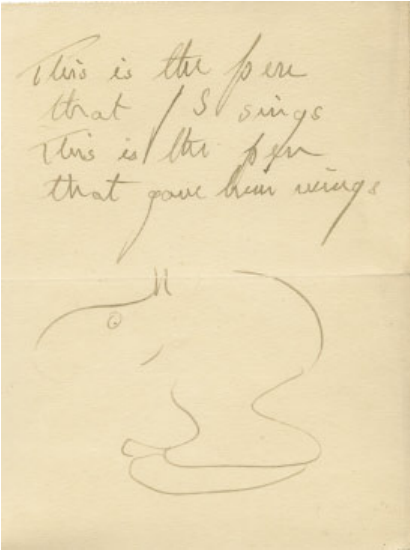 This is the pen
that / S sings
This is the pen
that gave him wings